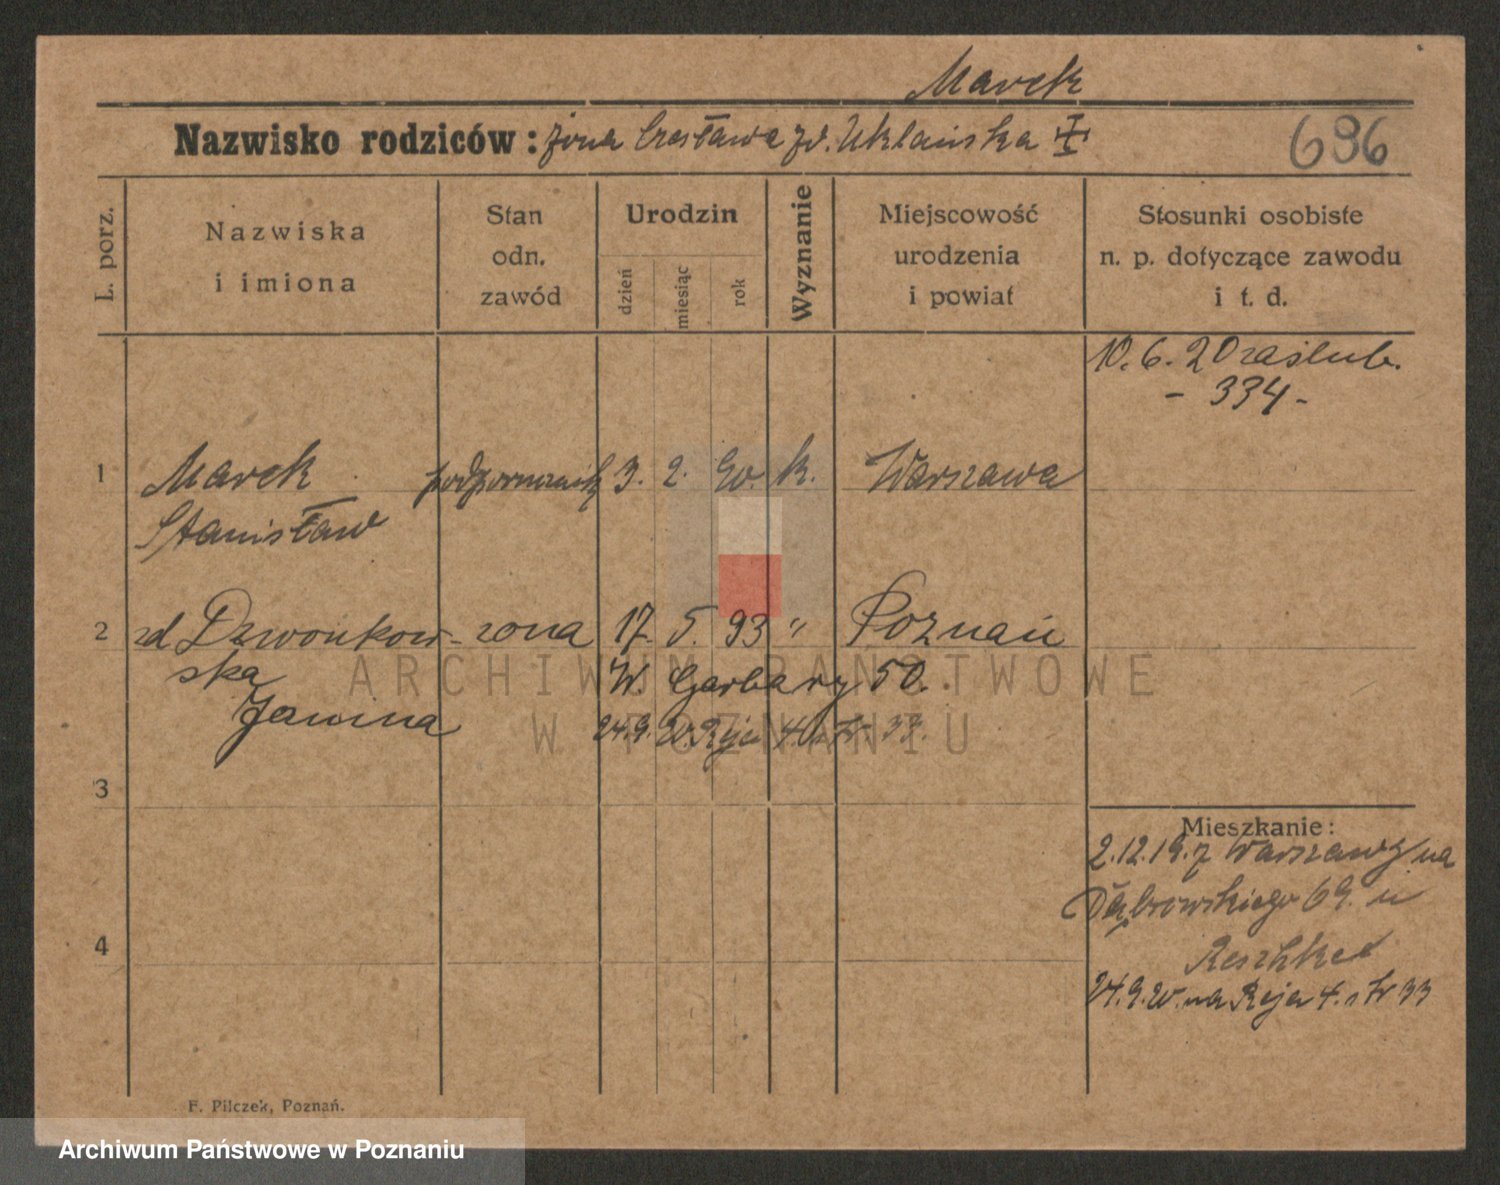 Marek
Nazwisko rodziców: żona Czesława zd. Uklańska
696
L. porz.
Nazwiska i imiona
Stan odn. zawód
Urodzin
dzień
miesiąc
rok
Wyznanie
Miejscowość urodzenia i powiat
Stosunki osobiste n. p. dotyczące zawodu i t. d.
10. 6. 20 zaślub.
- 334 -
1 Marek podporucznik 3. 2. 90. k. Warszawa
Stanisław
2 zd Dzwonkow- żona 17. 5. 93 " Poznań
ska W. Garbary 50.
Janina 24.9. 20. Reja 4. 33.
3
Mieszkanie:
2.12.19. z Warszawy na
Dąbrowskiego 69. u
Reschke
24.9.20. na Reja 4. tr 33
4
F. Pilczek, Poznań.
ARCHIWUM PAŃSTWOWE
W POZNANIU
Archiwum Państwowe w Poznaniu